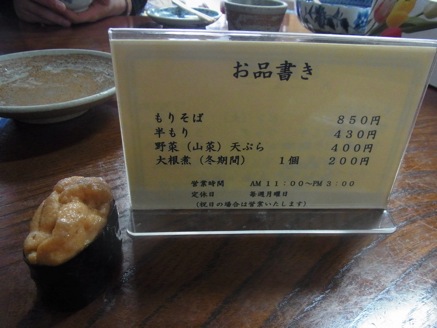 お品書き
もりそば 850円
半もり 430円
野菜（山菜）天ぷら 400円
大根煮（冬期間） 1個 200円
営業時間 AM 11:00～PM 3:00
定休日 毎週月曜日
（祝日の場合は営業いたします）